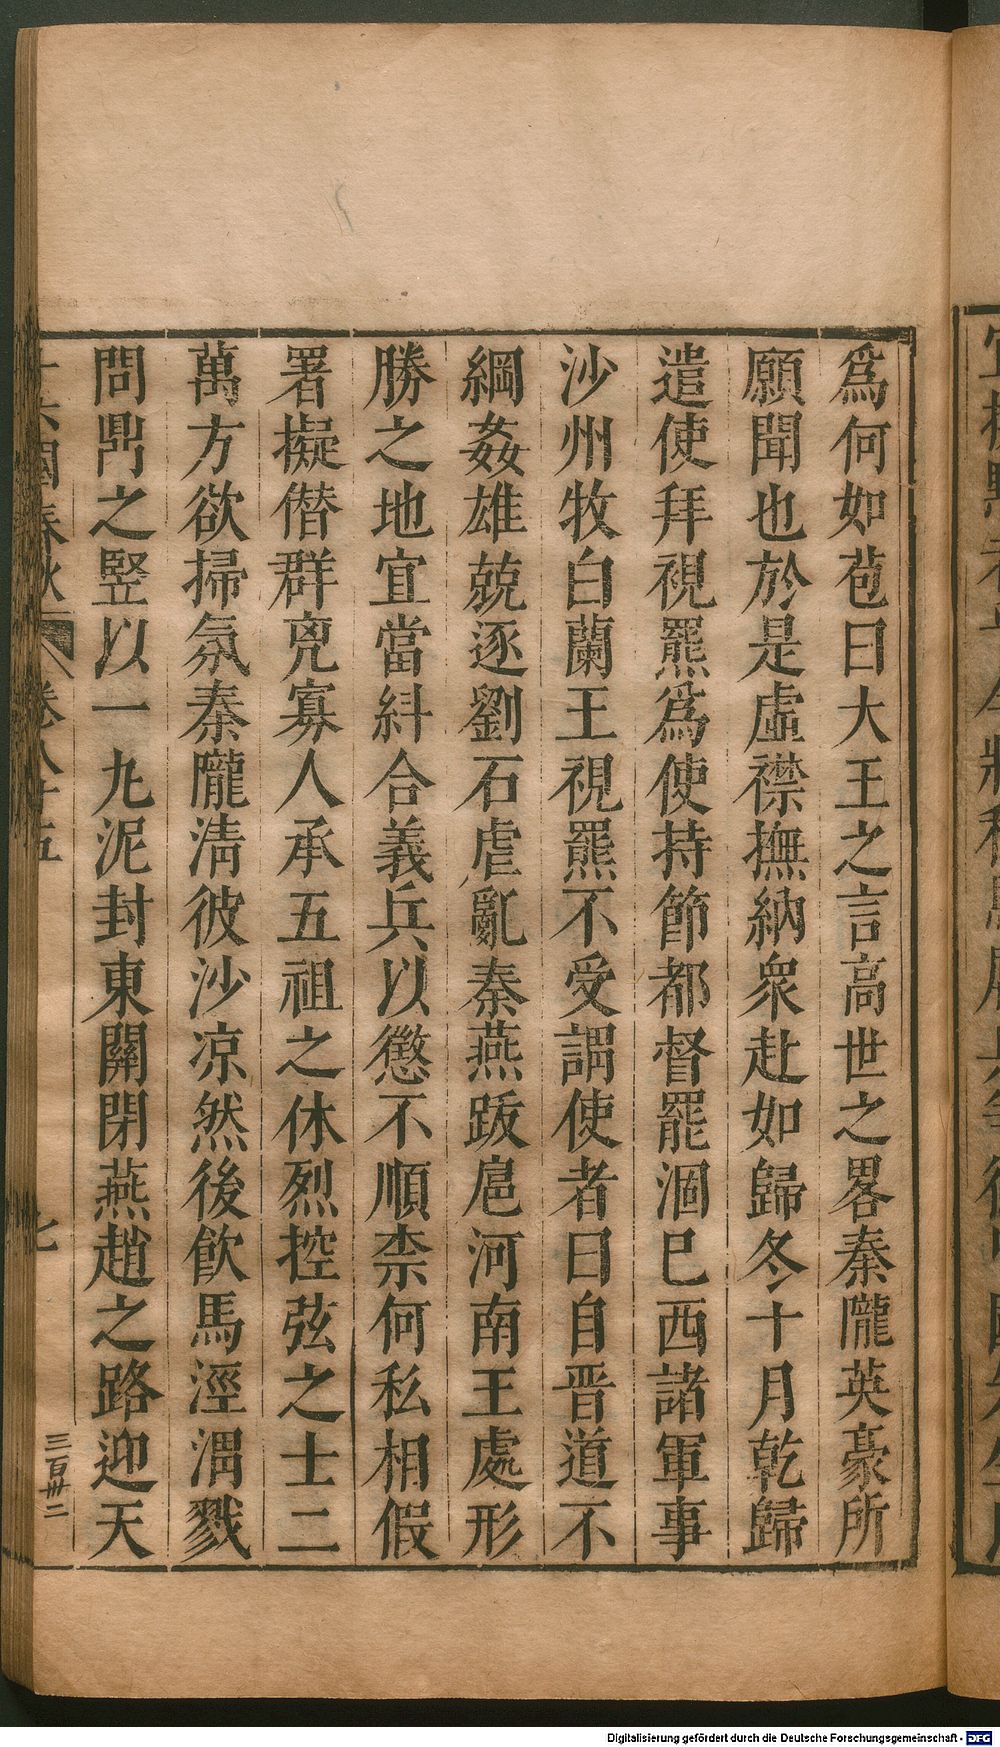 爲何如苞曰大王之言高世之畧秦隴英豪所
願聞也於是虛襟撫納衆赴如歸冬十月乾歸
遣使拜視羆爲使持節都督罷涸巳西諸軍事
沙州牧白蘭王視羆不受謂使者曰自晉道不
綱姦雄兢逐劉石虐亂秦燕跋扈河南王處形
勝之地宜當糾合義兵以懲不順柰何私相假
署擬僣群兇寡人承五祖之休烈控弦之士二
萬方欲掃氛秦隴淸彼沙凉然後飮馬涇渭戮
問鼎之豎以一九泥封東關閉燕趙之路迎天
十六國春秋 卷八十五 七
三百卅二
Digitalisierung gefördert durch die Deutsche Forschungsgemeinschaft - DFG